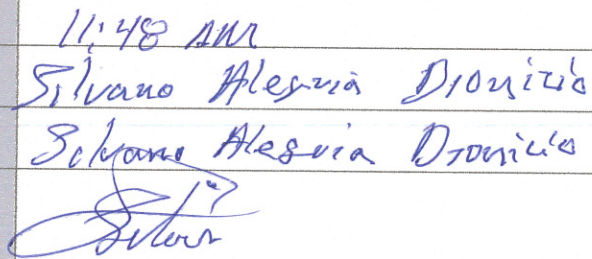 11:48 AM
Silvano Alegria Dionizio
Silvano Alegria Dionicio